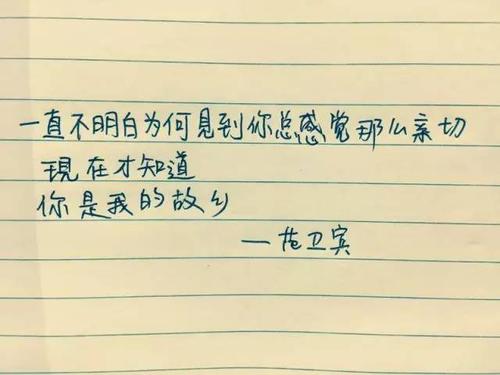 一直不明白为何見到你总感觉那么亲切
現在才知道
你是我的故乡
—范卫宾